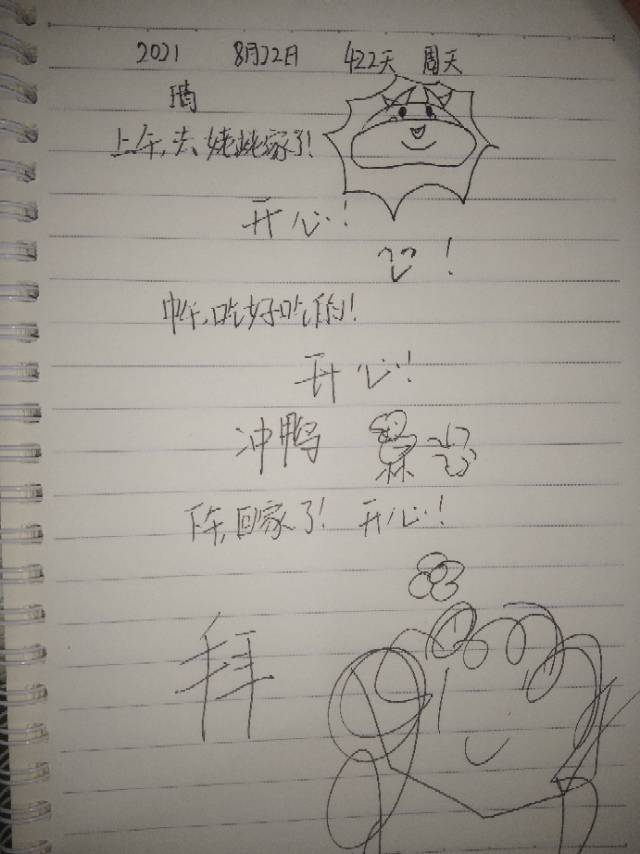 2021 8月22日 422天 周天
晴
上午,去姥姥家了!
开心!
!
中午,吃好吃的!
开心!
冲鸭
下午,回家了! 开心!
拜